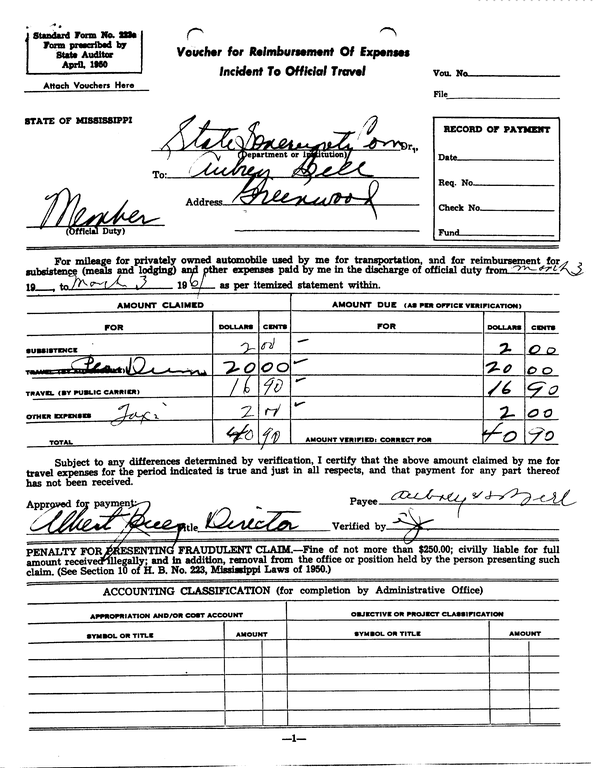 Standard Form No. 223a
Form prescribed by
State Auditor
April, 1950
Attach Vouchers Here
Voucher for Reimbursement Of Expenses
Incident To Official Travel
Vou. No.
File
STATE OF MISSISSIPPI
State Sovereignty Com Dr.,
(Department or Institution)
To: Aubrey Bell
Address Greenwood
Member
(Official Duty)
RECORD OF PAYMENT
Date
Req. No.
Check No.
Fund
For mileage for privately owned automobile used by me for transportation, and for reimbursement for
subsistence (meals and lodging) and other expenses paid by me in the discharge of official duty from March 3
19__, to March 3 1961 as per itemized statement within.
AMOUNT CLAIMED AMOUNT DUE (AS PER OFFICE VERIFICATION)
FOR DOLLARS CENTS FOR DOLLARS CENTS
SUBSISTENCE 2 00 2 00
Per Diem 20 00 20 00
TRAVEL (BY PUBLIC CARRIER) 16 90 16 90
OTHER EXPENSES Taxi 2 00 2 00
TOTAL 40 90 AMOUNT VERIFIED: CORRECT FOR 40 90
Subject to any differences determined by verification, I certify that the above amount claimed by me for
travel expenses for the period indicated is true and just in all respects, and that payment for any part thereof
has not been received.
Approved for payment: Payee Aubrey H Bell
Albert Jones Title Director Verified by
PENALTY FOR PRESENTING FRAUDULENT CLAIM.—Fine of not more than $250.00; civilly liable for full
amount received illegally; and in addition, removal from the office or position held by the person presenting such
claim. (See Section 10 of H. B. No. 223, Mississippi Laws of 1950.)
ACCOUNTING CLASSIFICATION (for completion by Administrative Office)
APPROPRIATION AND/OR COST ACCOUNT OBJECTIVE OR PROJECT CLASSIFICATION
SYMBOL OR TITLE AMOUNT SYMBOL OR TITLE AMOUNT
—1—